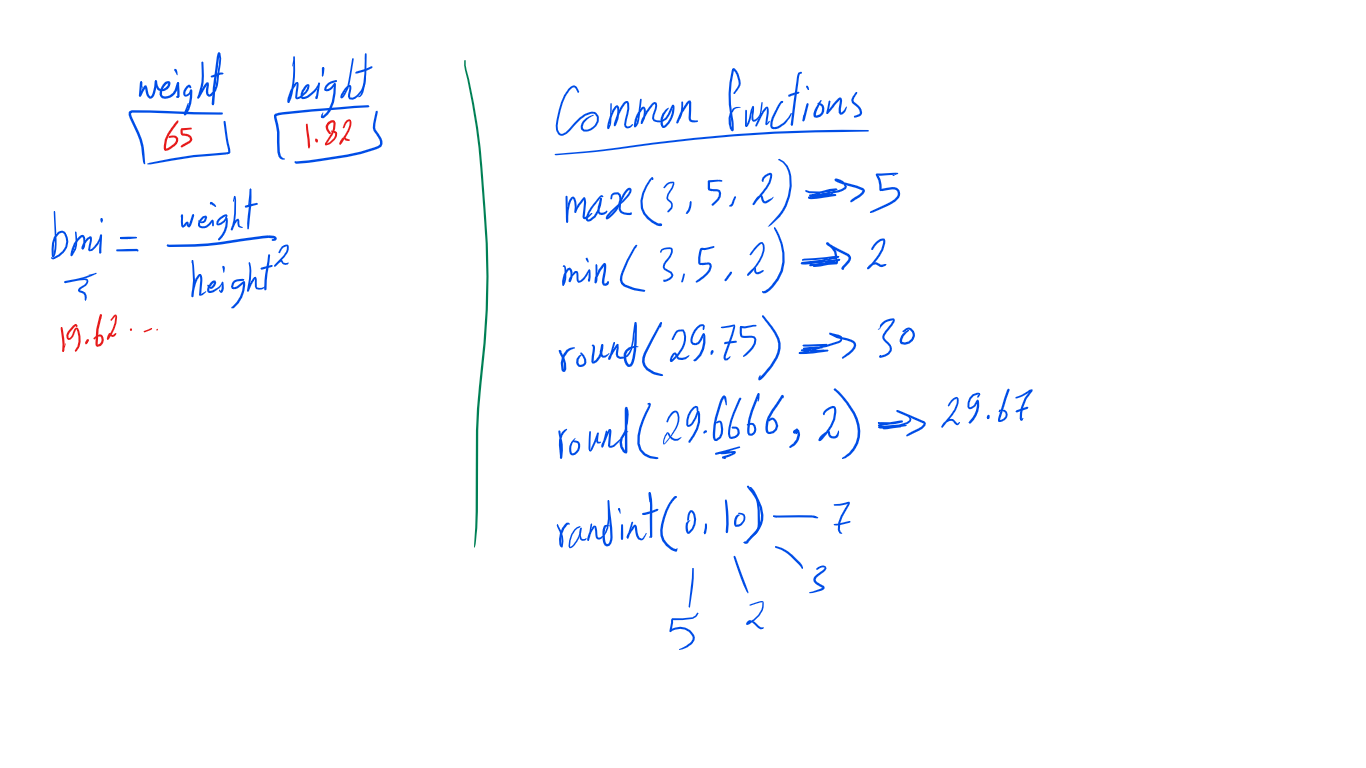 weight height
65 1.82
bmi = weight / height²
19.62...
Common functions
max(3, 5, 2) => 5
min(3, 5, 2) => 2
round(29.75) => 30
round(29.6666, 2) => 29.67
randint(0, 10) — 7
3
5 2